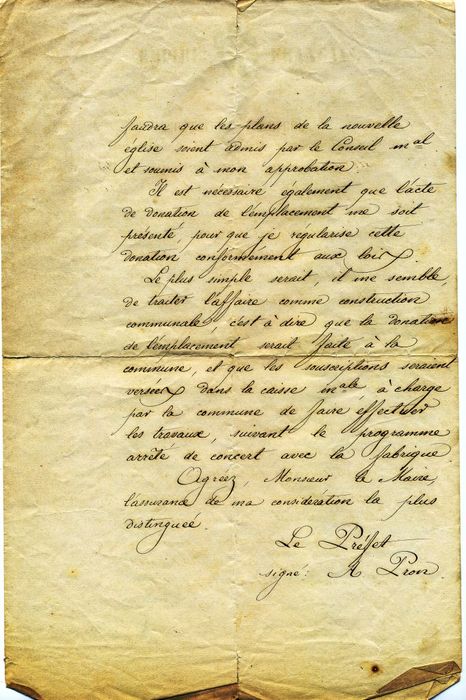 faudra que les plans de la nouvelle
église soient admis par le Conseil mal
et soumis à mon approbation.
Il est nécessaire également que l'acte
de donation de l'emplacement me soit
présenté, pour que je régularise cette
donation conformément aux loix.
Le plus simple serait, il me semble,
de traiter l'affaire comme construction
communale, c'est à dire que la donation
de l'emplacement serait faite à la
commune, et que les souscriptions seraient
versées dans la caisse male, à charge
par la commune de faire effectuer
les travaux, suivant le programme
arrêté de concert avec la fabrique.
Agréez, Monsieur le Maire,
l'assurance de ma considération la plus
distinguée.
Le Préfet
signé: A